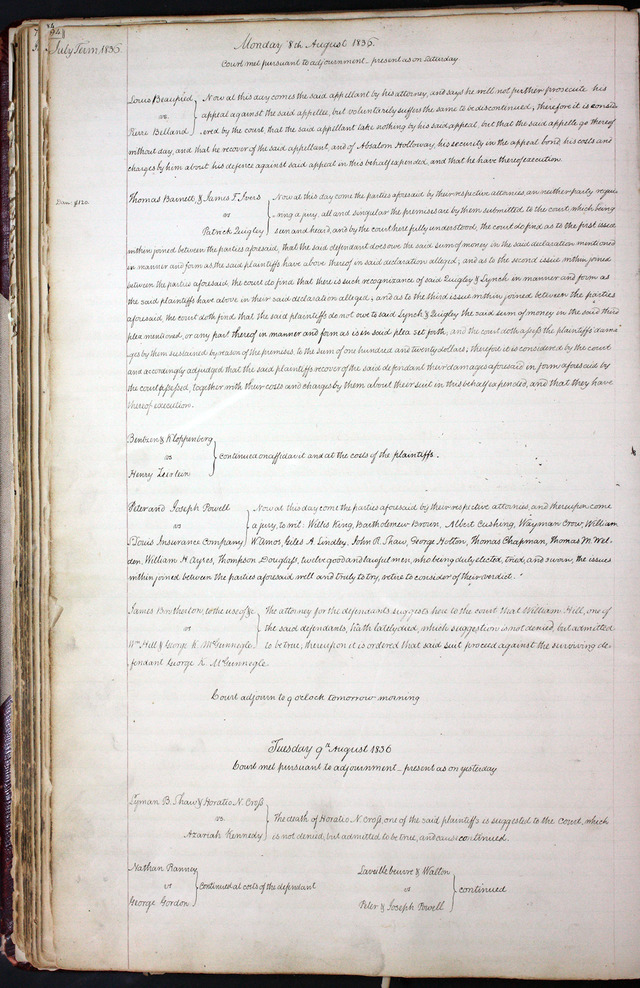 July Term, 1836
Monday 8th August 1836.
Court met pursuant to adjournment_ present as on Saturday
Louis Beaupied
vs
Pierre Belland
Now at this day comes the said appellant by his attorney, and says he will not further prosecute his
appeal against the said appellee, but voluntarily suffers the same to be discontinued; therefore it is consid
ered by the court that the said appellant take nothing by his said appeal, but that the said appelle go thereof
without day, and that he recover of the said appellant, and of Absalom Holloway, his security in the appeal bond, his costs and
charges by him about his defence against said appeal in this behalf expended, and that he have thereof execution.
Dam. $120.
Thomas Barnett & James T. Ivers
vs
Patrick Quigley
Now at this day come the parties aforesaid by their respective attornies, an neither party requi-
ring a jury, all and singular the premises are by them submitted to the court, which being
seen and heard, and by the court here fully understood, the court do find as to the first issue
within joined between the parties aforesaid, that the said defendant does owe the said sum of money in the said declaration mentioned
in manner and form as the said plaintiffs have above thereof in said declaration alleged; and as to the second issue within joined
between the parties aforesaid, the court do find that there is such recognizance of said Quigley & Lynch in manner and form as
the said plaintiffs have above in their said declaration alleged; and as to the third issue within joined between the parties
aforesaid, the court doth find that the said plaintiffs do not owe to said Lynch & Quigley the said sum of money in the said third
plea mentioned, or any part thereof in manner and form as is in said plea set forth; and the court doth assess the plaintiffs dama-
ges by them sustained by reason of the premises, to the sum of one hundred and twenty dollars; therefore it is considered by the court
and accordingly adjudged that the said plaintiffs recover of the said defendant their damages aforesaid in form aforesaid by
the court assessed, together with their costs and charges by them about their suit in this behalf expended, and that they have
thereof execution.
Bentzen & Kloppenberg
vs
Henry Zeirlein
continued on affidavit and at the costs of the plaintiffs.
Peter and Joseph Powell
vs
St Louis Insurance Company
Now at this day come the parties aforesaid by their respective attornies, and thereupon come
a jury, to wit: Willis King, Bartholemew Brown, Albert Cushing, Wayman Crow, William
W. Amos, Giles H. Lindley, John R. Shaw, George Hotton, Thomas Chapman, Thomas W. Wel-
den, William H. Ayres, Thompson Douglass, twelve good and lawful men, who being duly elected, tried, and sworn, the issues
within joined between the parties aforesaid well and truly to try, retire to consider of their verdict.
James Brotherton, to the use of &c
vs
Wm. Hill & George K. McGunnegle
The attorney for the defendants suggests here to the court that William Hill, one of
the said defendants, hath lately died, which suggestion is not denied, but admitted
to be true; thereupon it is ordered that said suit proceed against the surviving de-
fendant George K. McGunnegle.
Court adjourn to 9 o'clock tomorrow morning
Tuesday 9th August 1836
Court met pursuant to adjournment_ present as on yesterday
Lyman B. Shaw & Horatio N. Cross
vs.
Azariah Kennedy
The death of Horatio N. Cross, one of the said plaintiffs is suggested to the Court, which
is not denied, but admitted to be true, and cause continued.
Nathan Ranney
vs
George Gordon
continued at costs of the defendant
Laveille beurre & Walton
vs
Peter & Joseph Powell
continued